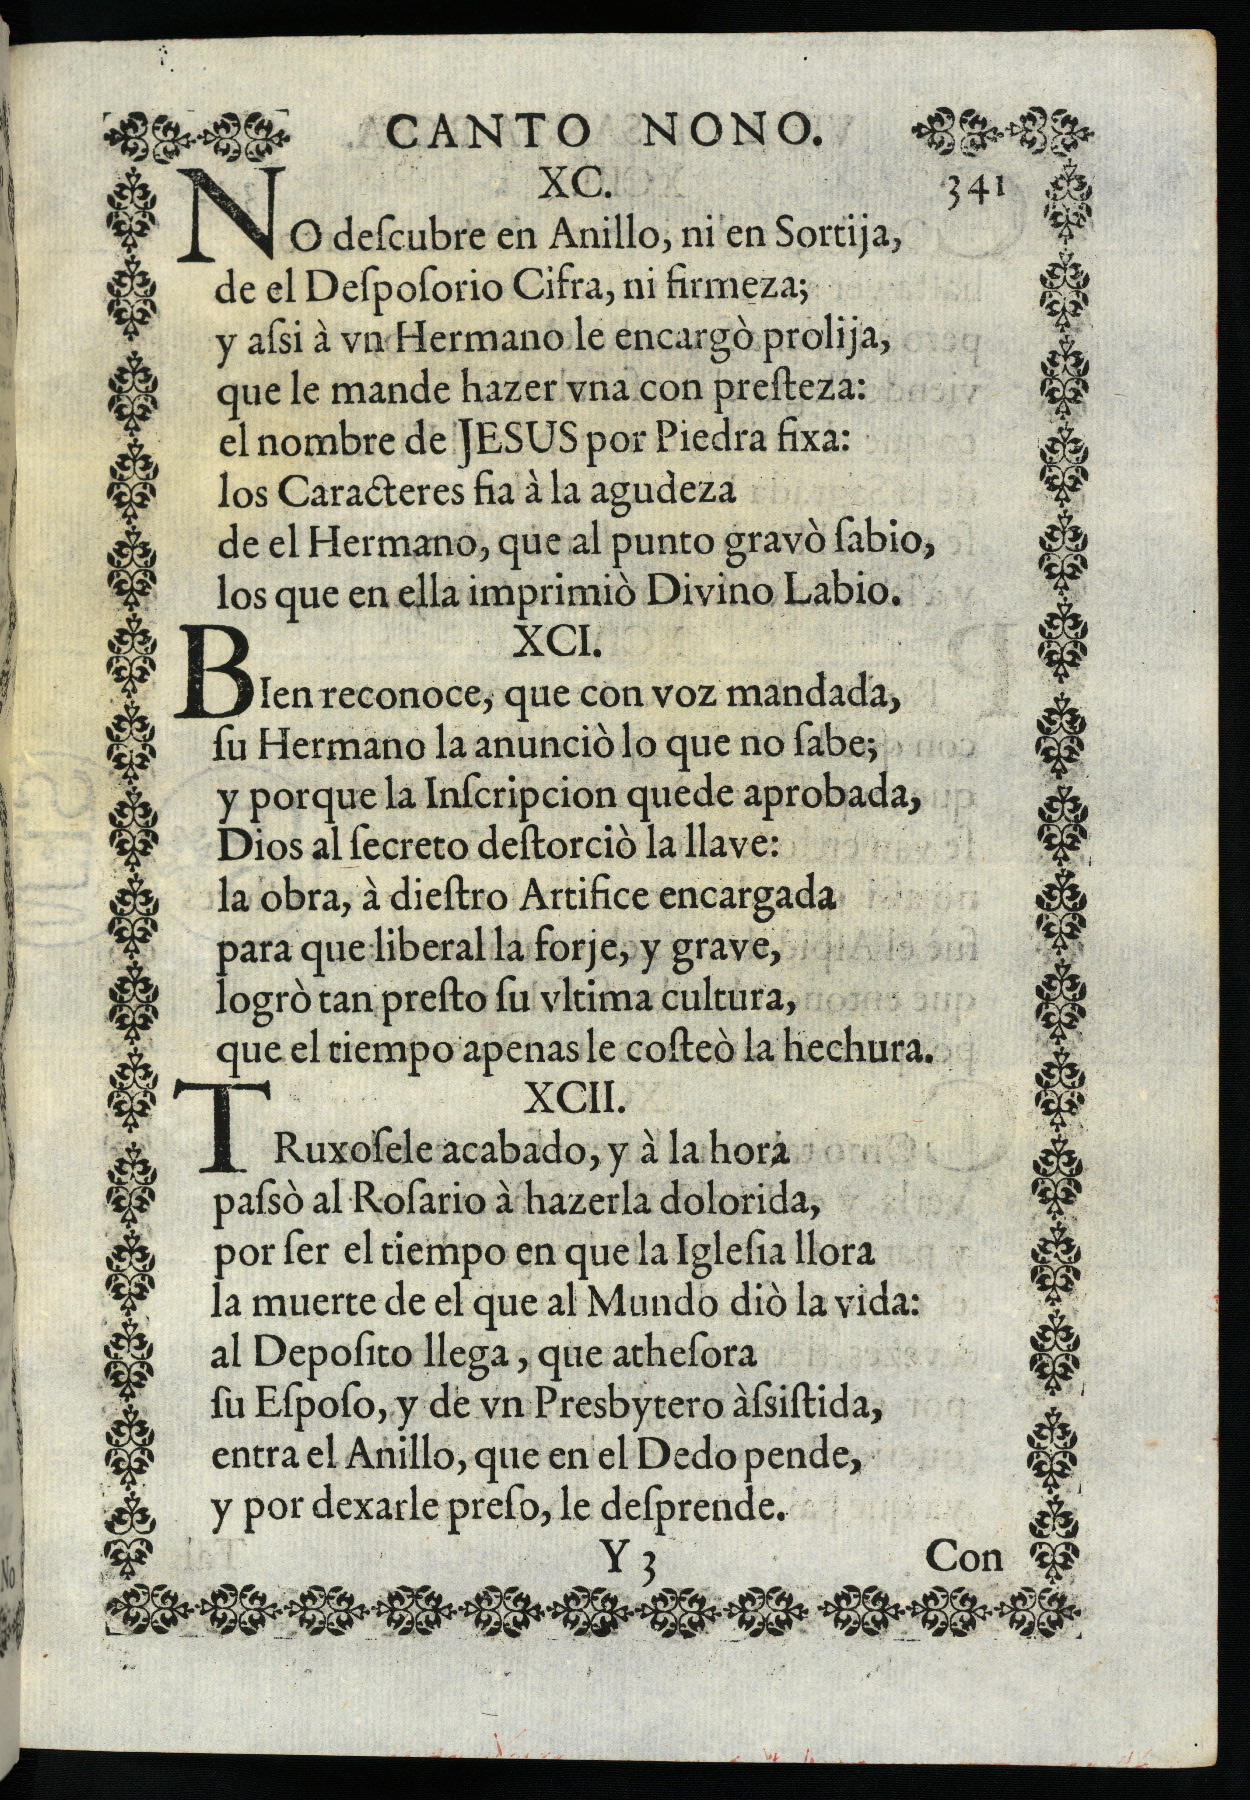 CANTO NONO.
XC. 341
NO deſcubre en Anillo, ni en Sortija,
de el Deſpoſorio Cifra, ni firmeza;
y aſsi à vn Hermano le encargò prolija,
que le mande hazer vna con preſteza:
el nombre de JESUS por Piedra fixa:
los Caracteres fia à la agudeza
de el Hermano, que al punto gravò ſabio,
los que en ella imprimiò Divino Labio.
XCI.
BIen reconoce, que con voz mandada,
ſu Hermano la anunciò lo que no ſabe;
y porque la Inſcripcion quede aprobada,
Dios al ſecreto deſtorciò la llave:
la obra, à dieſtro Artifice encargada
para que liberal la forje, y grave,
logrò tan preſto ſu vltima cultura,
que el tiempo apenas le coſteò la hechura.
XCII.
TRuxoſele acabado, y à la hora
paſsò al Roſario à hazerla dolorida,
por ſer el tiempo en que la Igleſia llora
la muerte de el que al Mundo diò la vida:
al Depoſito llega, que atheſora
ſu Eſpoſo, y de vn Presbytero àſsiſtida,
entra el Anillo, que en el Dedo pende,
y por dexarle preſo, le deſprende.
Y 3 Con